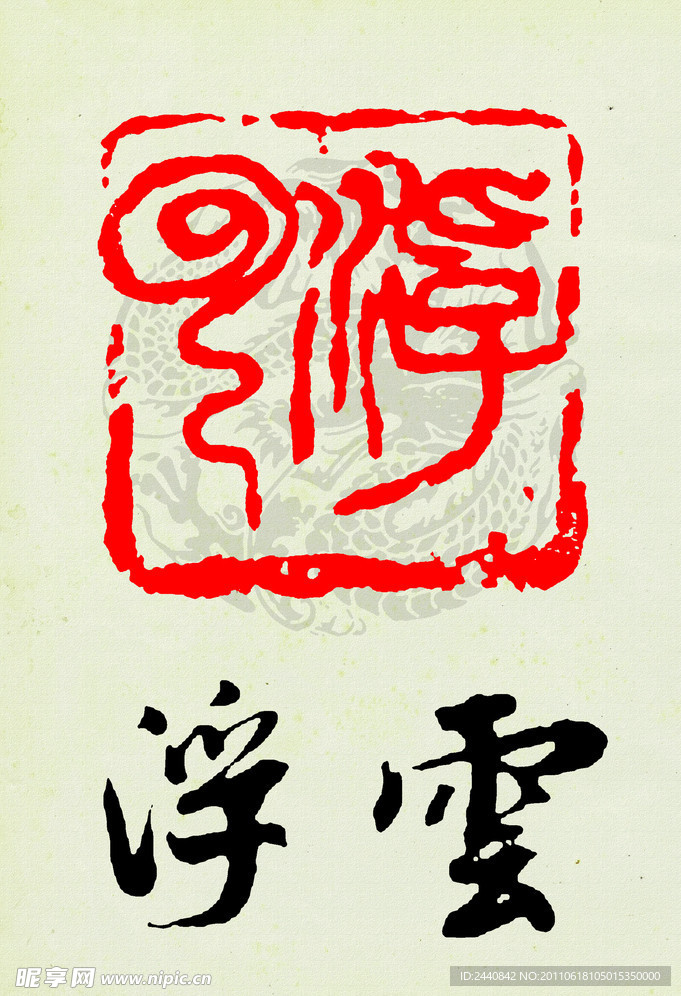 浮雲
浮雲
昵享网 www.nipic.cn
ID:2440842 NO:20110618105015350000